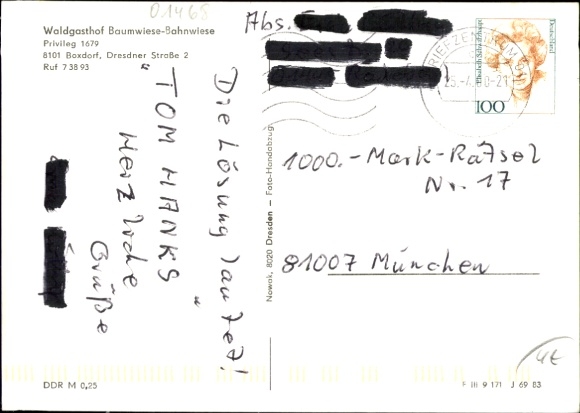 01468
Waldgasthof Baumwiese-Bahnwiese
Privileg 1679
8101 Boxdorf, Dresdner Straße 2
Ruf 7 38 93
Abs.
BRIEFZENTRUM
Deutschland
Elisabeth Schwarzhaupt
100
Die Lösung lautet!
"TOM HANKS"
Herzliche
Grüße
Nowak, 8020 Dresden – Foto-Handabzug
1000.- Mark-Rätsel
Nr. 17
81007 München
4€
DDR M 0,25
F III 9 171 J 69 83